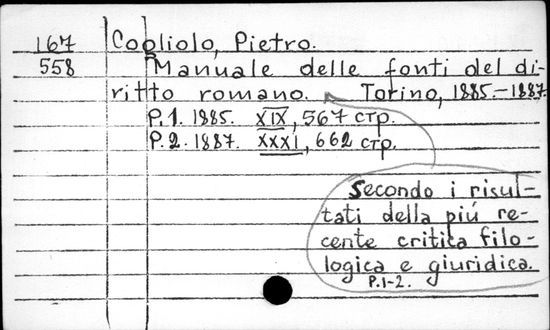 167 Cogliolo, Pietro.
558 Manuale delle fonti del di-
ritto romano. Torino, 1885.-1887.
P.1. 1885. XIX, 567 стр.
P.2. 1887. XXXI, 662 стр.
Secondo i risul-
tati della piú re-
cente critica filo-
logica e giuridica.
P.1-2.